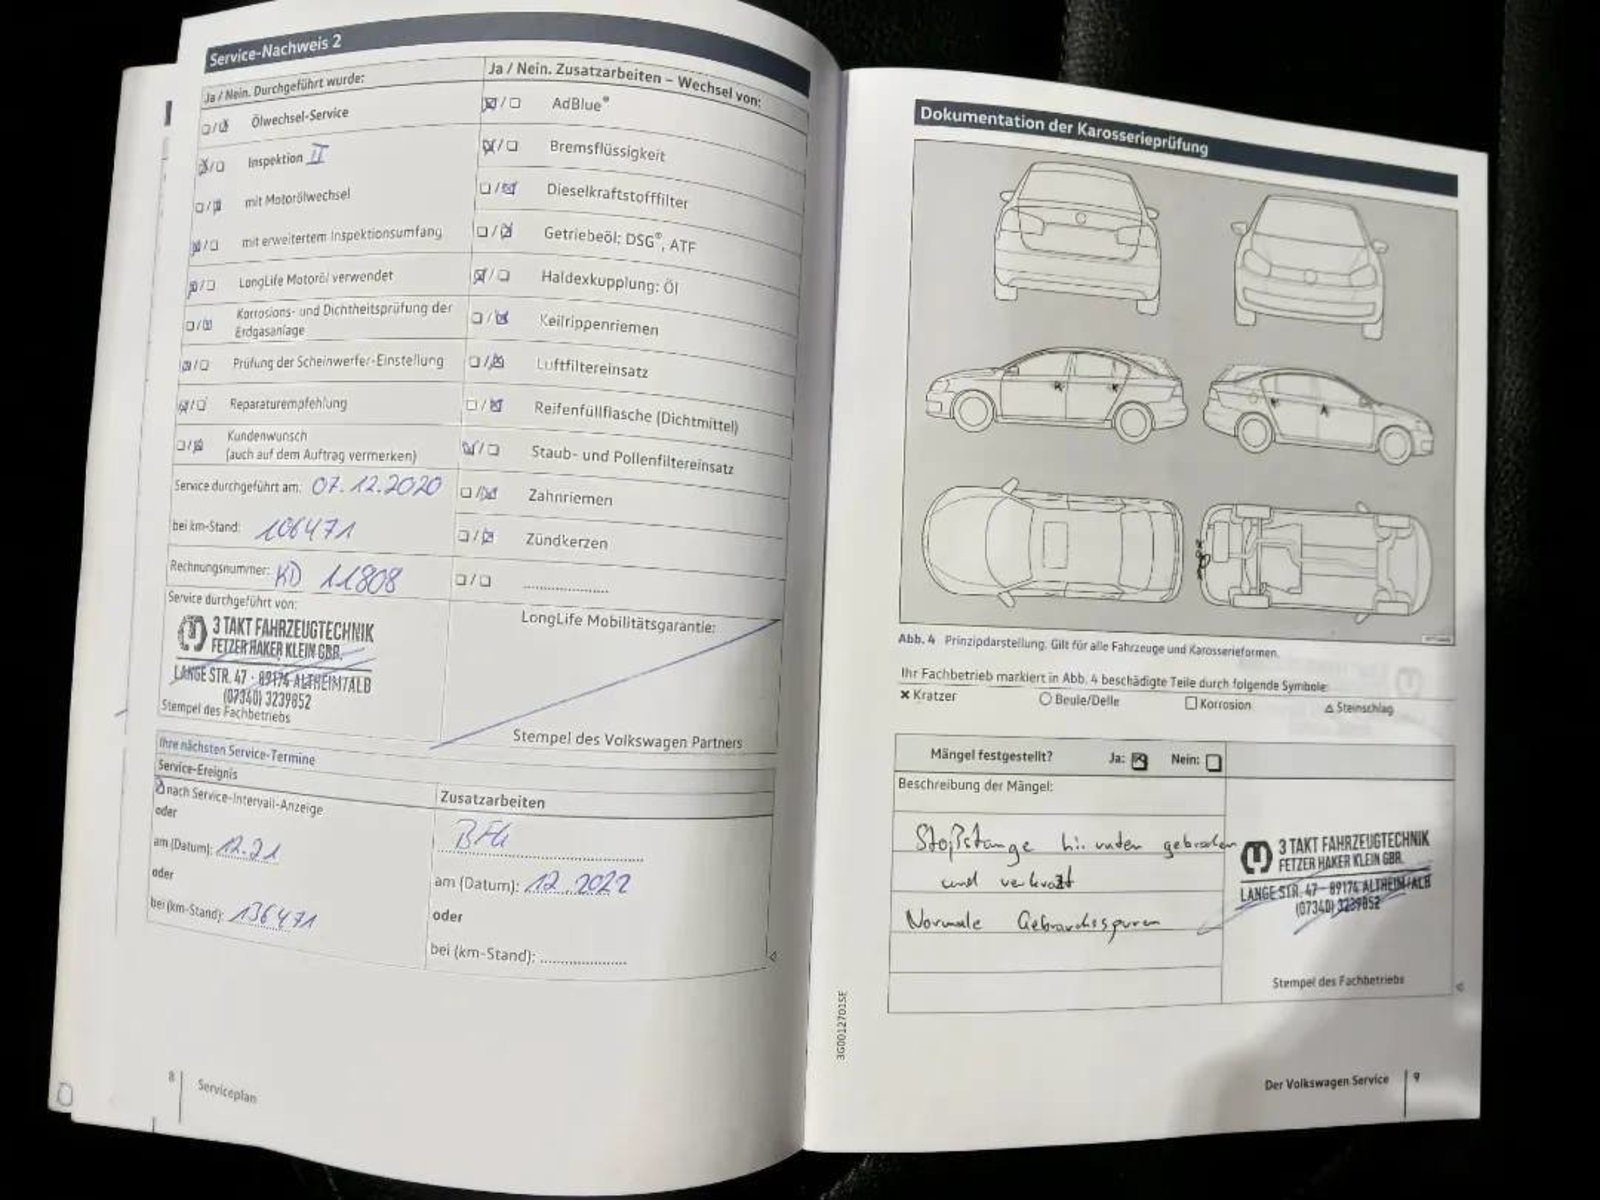 Service-Nachweis 2
Ja / Nein. Durchgeführt wurde:
Ölwechsel-Service
Inspektion II
mit Motorölwechsel
mit erweitertem Inspektionsumfang
LongLife Motoröl verwendet
Korrosions- und Dichtheitsprüfung der
Erdgasanlage
Prüfung der Scheinwerfer-Einstellung
Reparaturempfehlung
Kundenwunsch
(auch auf dem Auftrag vermerken)
Service durchgeführt am: 07.12.2020
bei km-Stand: 106471
Rechnungsnummer: KD 11808
Service durchgeführt von:
3 TAKT FAHRZEUGTECHNIK
FETZER HAKER KLEIN GBR.
LANGE STR. 47 - 89174 ALTHEIM/ALB
(07340) 3239852
Stempel des Fachbetriebs
Ja / Nein. Zusatzarbeiten – Wechsel von:
AdBlue®
Bremsflüssigkeit
Dieselkraftstofffilter
Getriebeöl: DSG®, ATF
Haldexkupplung: Öl
Keilrippenriemen
Luftfiltereinsatz
Reifenfüllflasche (Dichtmittel)
Staub- und Pollenfiltereinsatz
Zahnriemen
Zündkerzen
LongLife Mobilitätsgarantie:
Stempel des Volkswagen Partners
Ihre nächsten Service-Termine
Service-Ereignis
nach Service-Intervall-Anzeige
oder
am (Datum): 12.21
oder
bei (km-Stand): 136471
Zusatzarbeiten
BFG
am (Datum): 12.2022
oder
bei (km-Stand):
8 Serviceplan
Dokumentation der Karosserieprüfung
Abb. 4 Prinzipdarstellung. Gilt für alle Fahrzeuge und Karosserieformen.
Ihr Fachbetrieb markiert in Abb. 4 beschädigte Teile durch folgende Symbole:
× Kratzer ○ Beule/Delle □ Korrosion △ Steinschlag
Mängel festgestellt? Ja: Nein:
Beschreibung der Mängel:
Stoßstange hi. unten gebrochen
und verkratzt
Normale Gebrauchsspuren
3 TAKT FAHRZEUGTECHNIK
FETZER HAKER KLEIN GBR.
LANGE STR. 47 - 89174 ALTHEIM/ALB
(07340) 3239852
Stempel des Fachbetriebs
3G0012701SE
Der Volkswagen Service 9